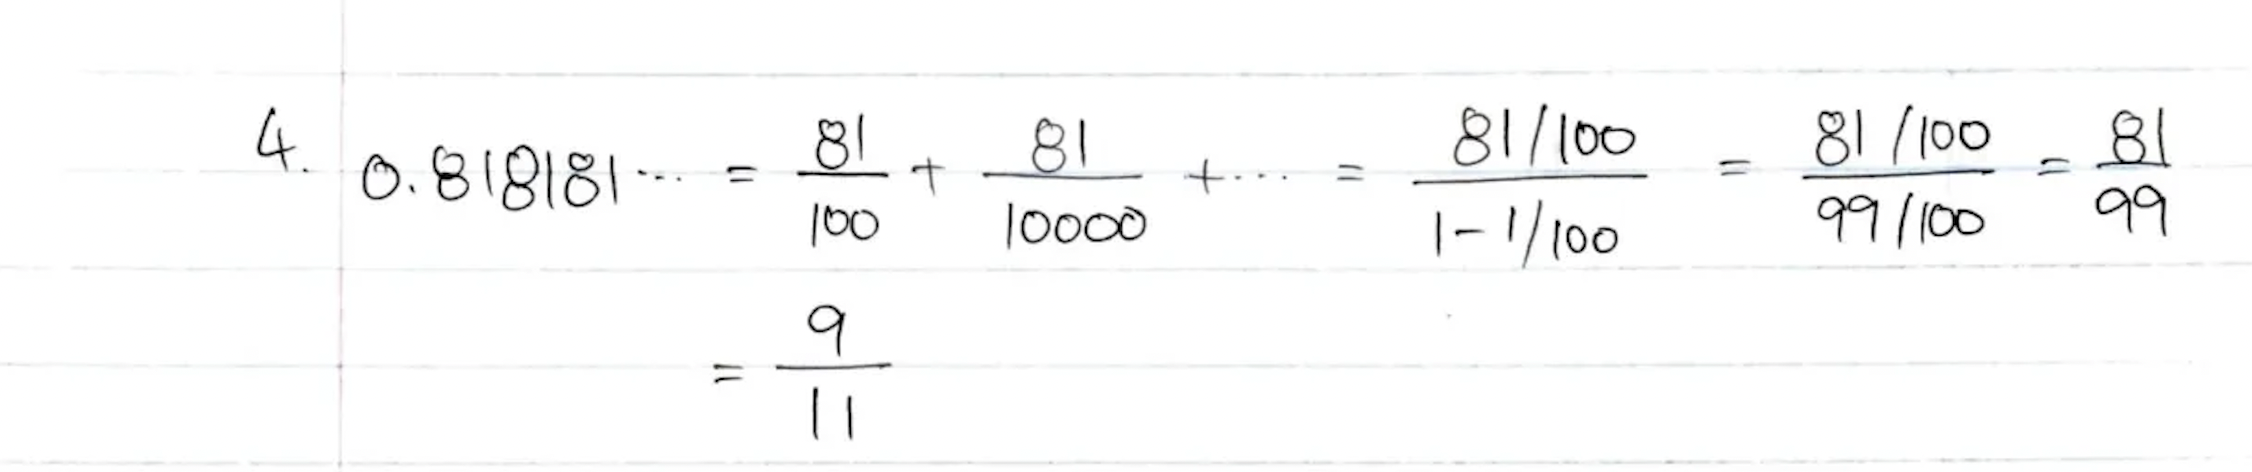 4. 0.818181... = 81/100 + 81/10000 + ... = (81/100)/(1-1/100) = (81/100)/(99/100) = 81/99
= 9/11